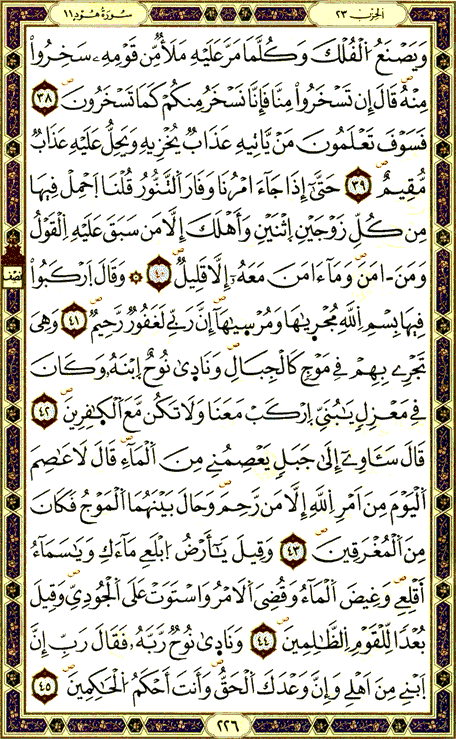 الحزب ٢٣
سورة هود ١١
وَيَصْنَعُ الْفُلْكَ وَكُلَّمَا مَرَّ عَلَيْهِ مَلَأٌ مِّن قَوْمِهِ سَخِرُواْ
مِنْهُ قَالَ إِن تَسْخَرُواْ مِنَّا فَإِنَّا نَسْخَرُ مِنكُمْ كَمَا تَسْخَرُونَ ٣٨
فَسَوْفَ تَعْلَمُونَ مَنْ يَّاتِيهِ عَذَابٌ يُخْزِيهِ وَيَحِلُّ عَلَيْهِ عَذَابٌ
مُّقِيمٌ ٣٩ حَتَّىٰ إِذَا جَآءَ امْرُنَا وَفَارَ التَّنُّورُ قُلْنَا اَحْمِلْ فِيهَا
مِن كُلِّ زَوْجَيْنِ اِثْنَيْنِ وَأَهْلَكَ إِلَّا مَن سَبَقَ عَلَيْهِ الْقَوْلُ
وَمَنَ ـامَنَ وَمَآ ءَامَنَ مَعَهُ إِلَّا قَلِيلٌ ٤٠ وَقَالَ اَرْكَبُواْ
فِيهَا بِسْمِ اللَّهِ مُجْر۪ىٰهَا وَمُرْسَىٰهَا إِنَّ رَبِّي لَغَفُورٌ رَّحِيمٌ ٤١ وَهْىَ
تَجْرِي بِهِمْ فِي مَوْجٍ كَالْجِبَالِ وَنَادَىٰ نُوحٌ اِبْنَهُ وَكَانَ
فِي مَعْزِلٍ يَٰبُنَيِّ اِرْكَب مَّعَنَا وَلَا تَكُن مَّعَ الْكَٰفِرِينَ ٤٢
قَالَ سَـَٔاوِي إِلَىٰ جَبَلٍ يَعْصِمُنِي مِنَ الْمَآءِ قَالَ لَا عَاصِمَ
اَلْيَوْمَ مِنَ اَمْرِ اِللَّهِ إِلَّا مَن رَّحِمَ وَحَالَ بَيْنَهُمَا الْمَوْجُ فَكَانَ
مِنَ الْمُغْرَقِينَ ٤٣ وَقِيلَ يَٰٓأَرْضُ اُبْلَعِي مَآءَكِ وَيَٰسَمَآءُ
اَقْلِعِي وَغِيضَ الْمَآءُ وَقُضِيَ الَامْرُ وَاسْتَوَتْ عَلَى الْجُودِيِّ وَقِيلَ
بُعْدًا لِّلْقَوْمِ الظَّٰلِمِينَ ٤٤ وَنَادَىٰ نُوحٌ رَّبَّهُ فَقَالَ رَبِّ إِنَّ
اَبْنِي مِنَ اَهْلِي وَإِنَّ وَعْدَكَ الْحَقُّ وَأَنتَ أَحْكَمُ الْحَٰكِمِينَ ٤٥
نصف
٢٢٦